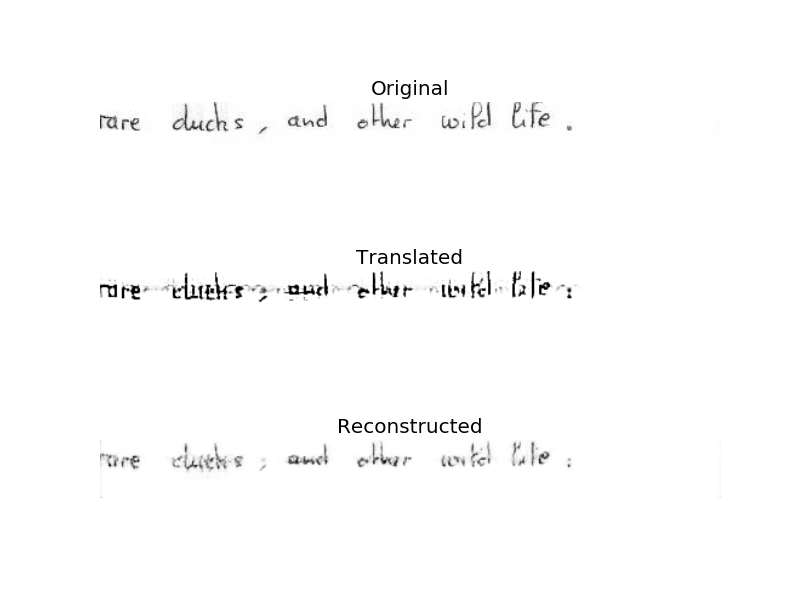 Original
rare ducks, and other wild life.
Translated
rare ducks, and other wild life :
Reconstructed
rare ducks ; and other wild life :